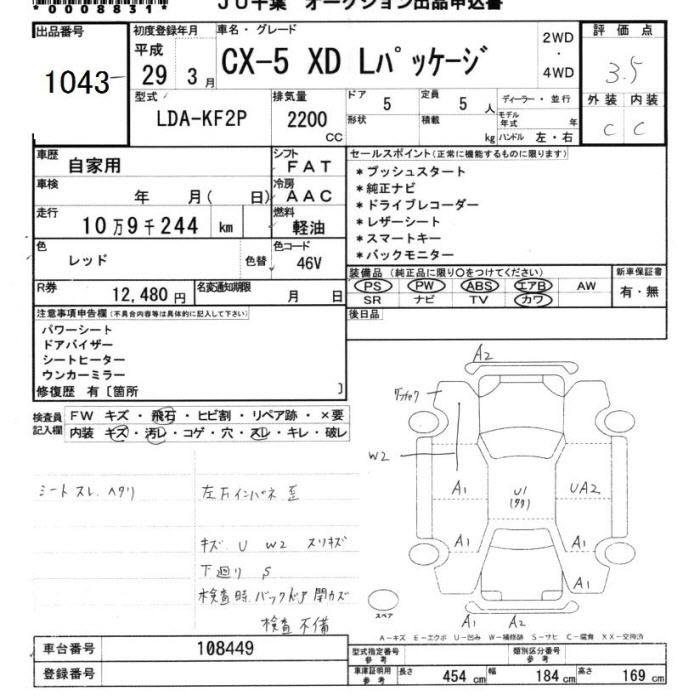 *0008831*
JU千葉 オークション出品申込書
出品番号
1043
初度登録年月
平成
29 3 月
車名・グレード
CX-5 XD Lパッケージ
2WD
・
4WD
評価点
3.5
外装 内装
C C
型式
LDA-KF2P
排気量
2200
CC
ドア
5
定員
5 人
形状
積載
kg
ディーラー・並行
モデル年式 年
ハンドル 左・右
車歴
自家用
シフト
FAT
車検
年 月( 日)
冷房
AAC
走行
10万9千244 km
燃料
軽油
色
レッド
色替
色コード
46V
R券
12,480 円
名変通知期限
月 日
セールスポイント(正常に機能するものに限ります)
*プッシュスタート
*純正ナビ
*ドライブレコーダー
*レザーシート
*スマートキー
*バックモニター
装備品 (純正品に限り○をつけてください)
PS PW ABS エアB AW
SR ナビ TV カワ
新車保証書
有・無
後日品
注意事項申告欄(不具合内容等は具体的に記入して下さい)
パワーシート
ドアバイザー
シートヒーター
ウンカーミラー
修復歴 有〔箇所 〕
検査員記入欄
FW キズ・飛石・ヒビ割・リペア跡・×要
内装 キズ・汚レ・コゲ・穴・スレ・キレ・破レ
シートスレ、ヘタリ
左右インパネ歪
キズ U W2 スリキズ
下廻り S
検査時バックドア閉カズ
検査不備
A2
W2
A1
U1
UA2
A1
A1
A1
A1
A2
スペア
A-キズ E-エクボ U-凹み W-補修跡 S-サビ C-腐食 XX-交換済
車台番号
108449
登録番号
型式指定番号
参考
類別区分番号
参考
車庫証明用
参考
長さ 454 cm 幅 184 cm 高さ 169 cm